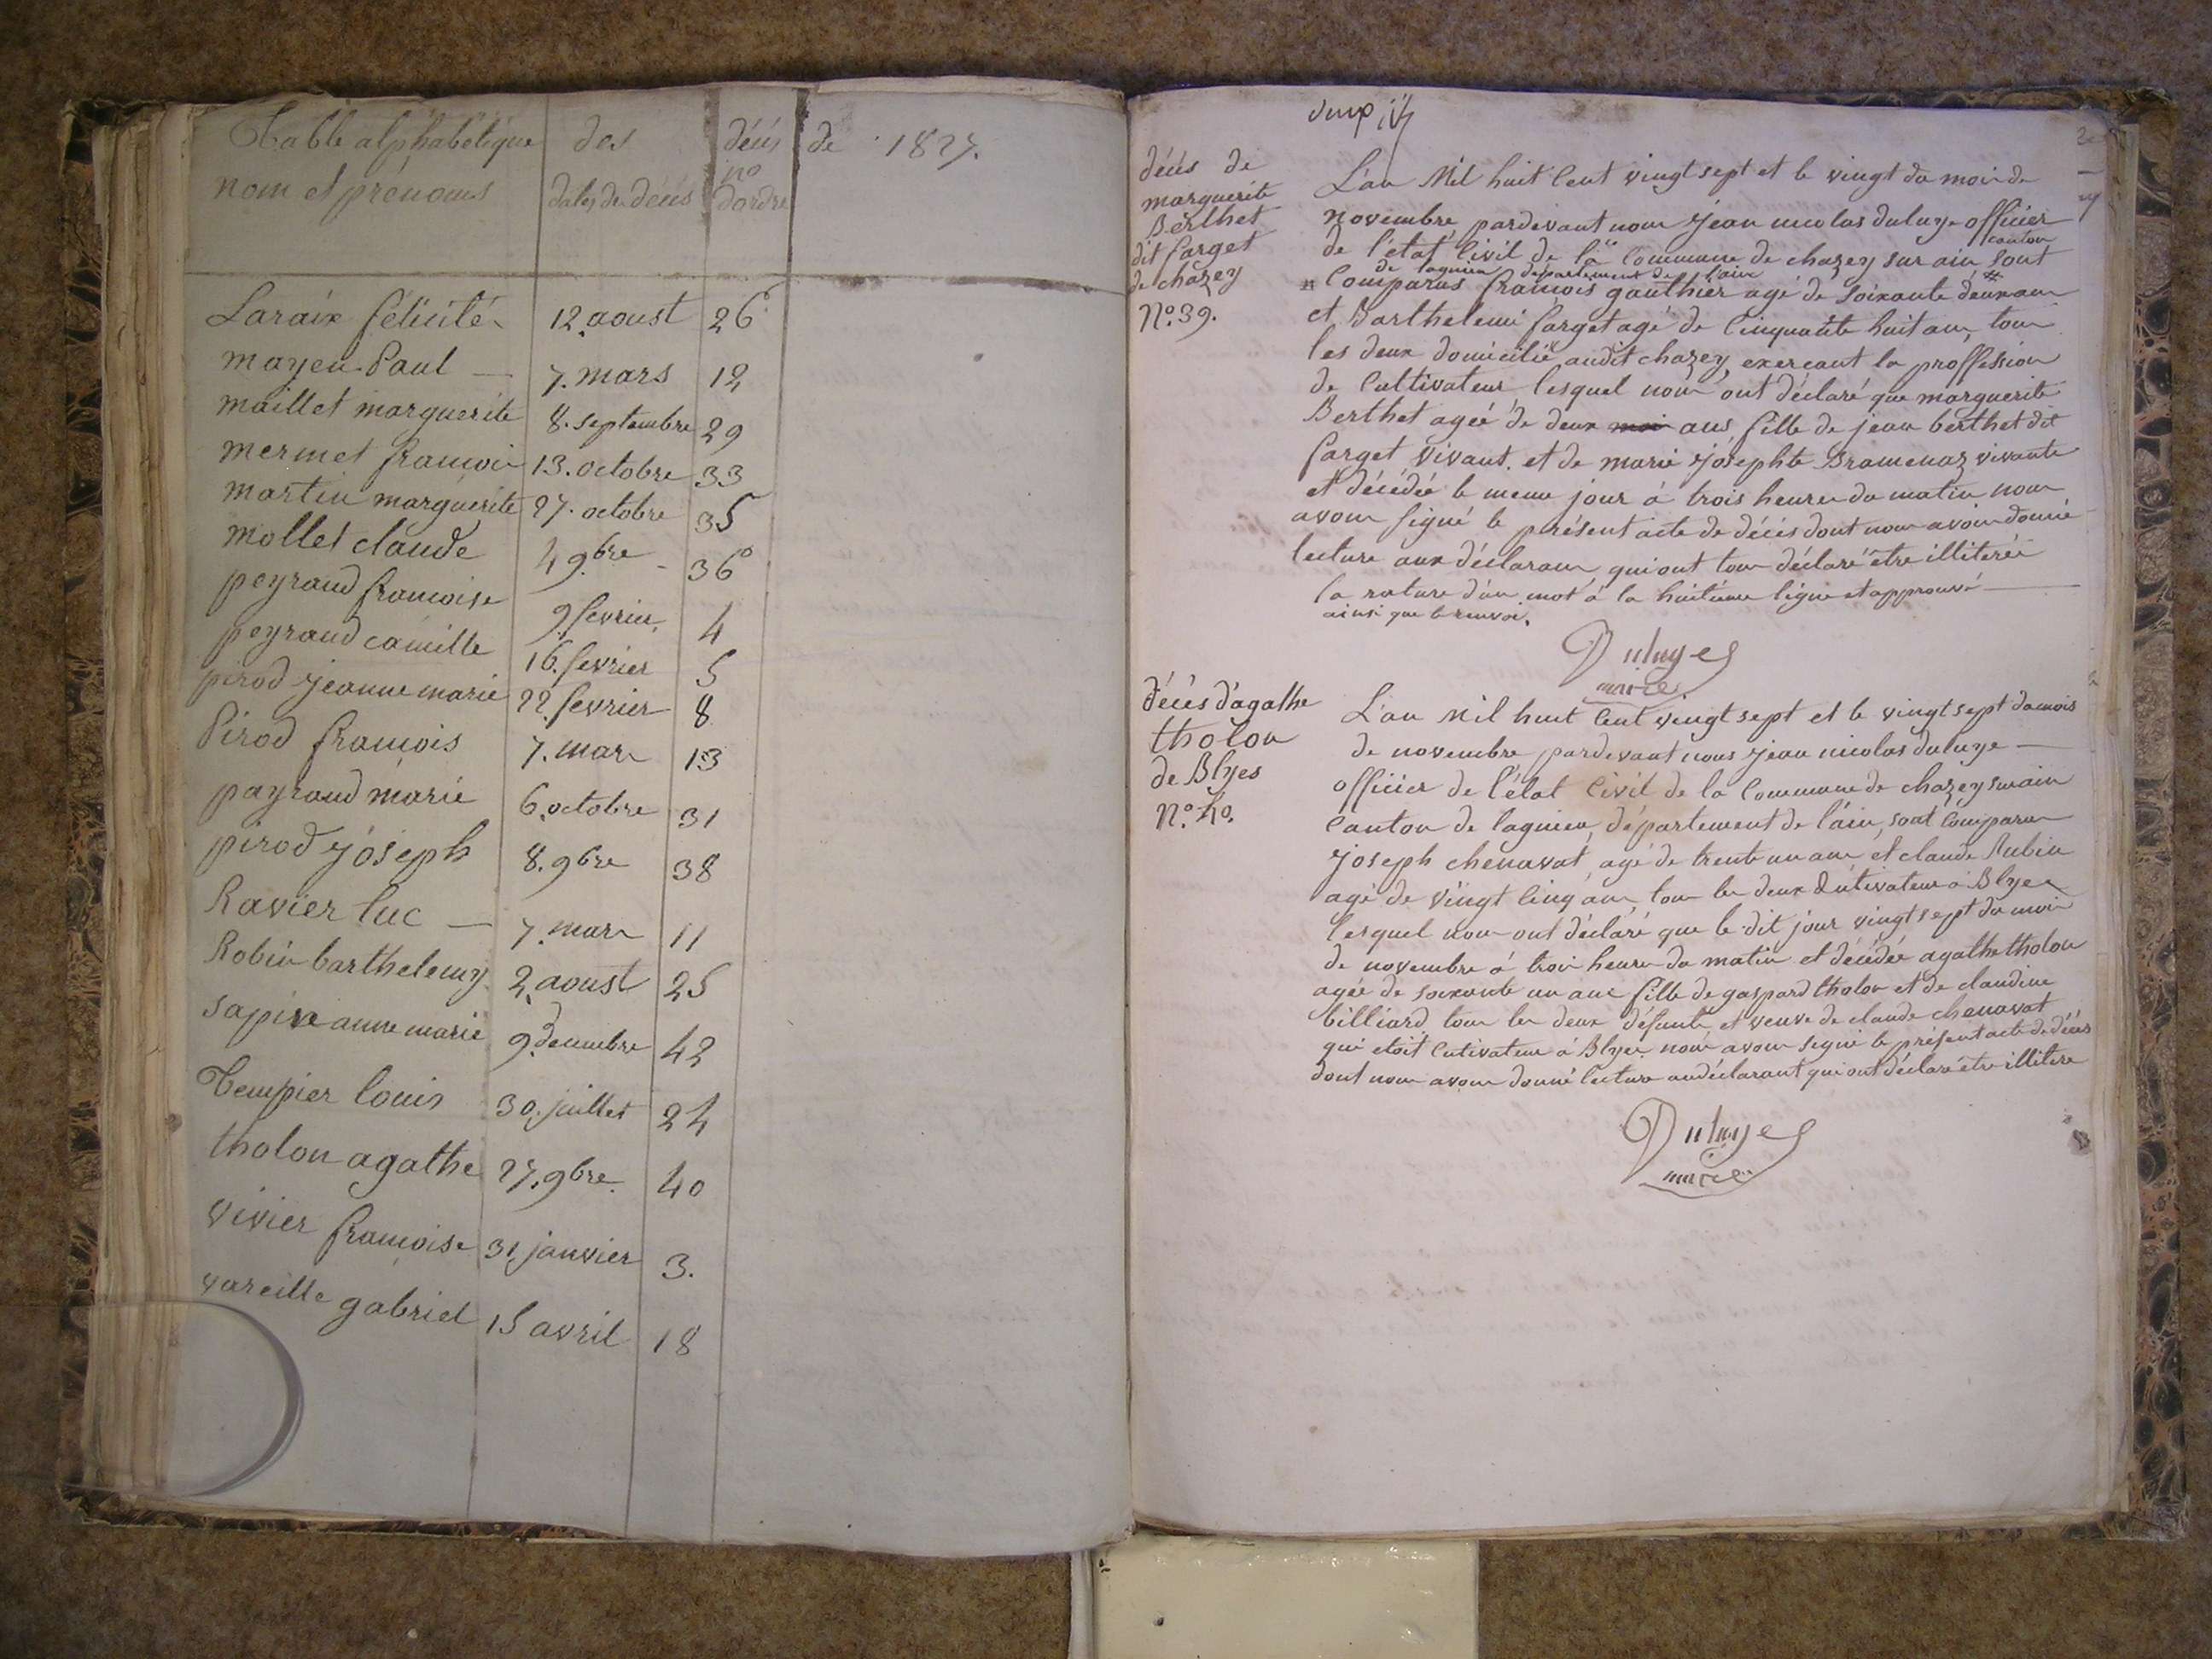 Table alphabétique des décès de 1827.
nom et prénoms dates de décès no dordre
Laraix félicité 12. aoust 26
mayen Paul — 7. mars 12
maillet marguerite 8. septembre 29
mermet francois 13. octobre 33
martin marguerite 27. octobre 35
mollet claude 4 9.bre - 36
peyraud francoise 9. fevrier 4
peyraud camille 16. fevrier 5
pirod jeanne marie 22. fevrier 8
Pirod francois 7. mars 13
payraud marie 6. octobre 31
pirod joseph 8. 9bre 38
Ravier luc — 7. mars 11
Robin barthelemy 2. aoust 25
sapin anne marie 9. decembre 42
Tempier louis 30. juillet 24
tholon agathe 27. 9bre 40
vivier francoise 31 janvier 3.
vareille gabriel 15 avril 18
décès de
marguerite
Berthet
dit farget
de chazey
No. 39.
L'an Mil huit Cent vingt sept et le vingt du mois de
novembre pardevant nous jean nicolas duluye officier
de l'état Civil de la Commune de chazey sur ain canton
de lagnieu département de l'ain sont
Comparus francois gauthier agé de soixante deux ans
et Barthelemi farget agé de Cinquante huit ans, tous
les deux domiciliés audit chazey, exercant la proffession
de Cultivateur, lesquel nous ont déclaré que marguerite
Berthet ageé de deux moi ans fille de jean berthet dit
farget vivant. et de marie josephte Bramenaz vivante
et décédée le meme jour à trois heures du matin nous
avons signé le présent acte de décès dont nous avons donné
lecture aux déclarans qui ont tous déclaré être illiterés
la rature d'un mot à la huitieme ligne et approuvé
ainsi que le renvoi.
Duluye
maire
décès d'agathe
tholon
de Blyes
No. 40.
L'an Mil huit Cent vingt sept et le vingt sept du mois
de novembre pardevant nous jean nicolas duluye
officier de l'état Civil de la Commune de chazey sur ain
Canton de lagnieu, département de l'ain, sont Comparus
joseph chenavat, agé de trente un ans et claude Rubin
agé de vingt Cinq ans, tous les deux Cutivateurs à Blyes
lesquel nous ont déclaré que le dit jour vingt sept du mois
de novembre à trois heures du matin et décédée agathe tholon
agée de soixante un ans fille de gaspard tholon et de claudine
billiard tous les deux défunts, et veuve de claude chenavat
qui etoit Cutivateur à Blyes nous avons signé le présent acte de décès
dont nous avons donné lecture au déclarant qui ont déclaré être illitere
Duluye
maire